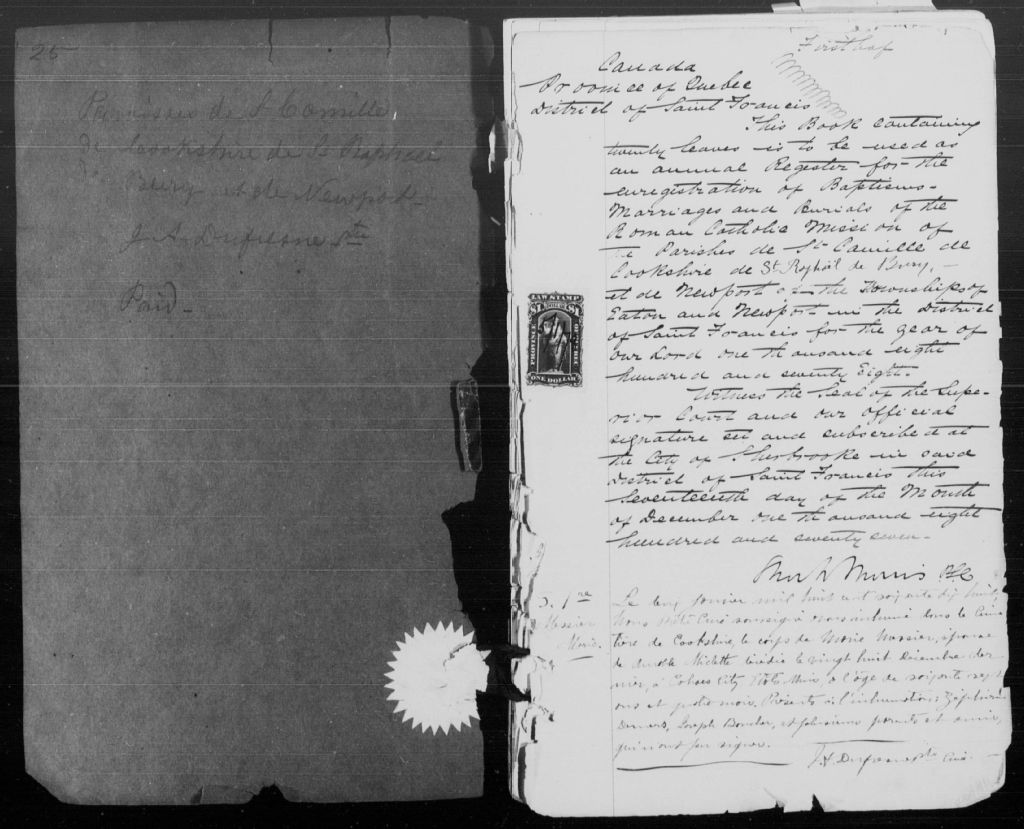 25
Paroisses de St Camille
de Cookshire de St Raphael
Bury et de Newport
J. A. Dufresne Ptre
Paid
First leaf
Canada
Province of Quebec
District of Saint Francis
This Book containing
twenty leaves is to be used as
an annual Register for the
enregistration of Baptisms-
Marriages and Burials of the
Roman Catholic Mission of
the Parishes de St Camille de
Cookshire de St Raphaël de Bury, -
et de Newport of the Townships of
Eaton and Newport in the District
of Saint Francis for the year of
our Lord one thousand eight
hundred and seventy Eight.
Witness the Seal of the Supe-
rior Court and our official
signature set and subscribed at
the City of Sherbrooke in said
District of Saint Francis this
Seventeenth day of the Month
of December one thousand eight
hundred and seventy seven -
LAW STAMP
$1 $1
PROVINCE OF QUEBEC
ONE DOLLAR
Morris
S. 1re
Messier
Marie.
Le janvier mil huit cent soixante dix huit,
Nous Curé soussigné avons inhumé dans le Cime
tière de Cookshire, le corps de Marie Messier, épouse
de Miclette décédée le vingt huit Décembre der
nier, à Cohoes City à l'âge de soixante sept
ans et quatre mois. Présents à l'inhumation: Zéphirin
Demers, Joseph Boucher, et plusieurs parents et amis,
qui n'ont su signer.
J. A. Dufresne ptre Curé.